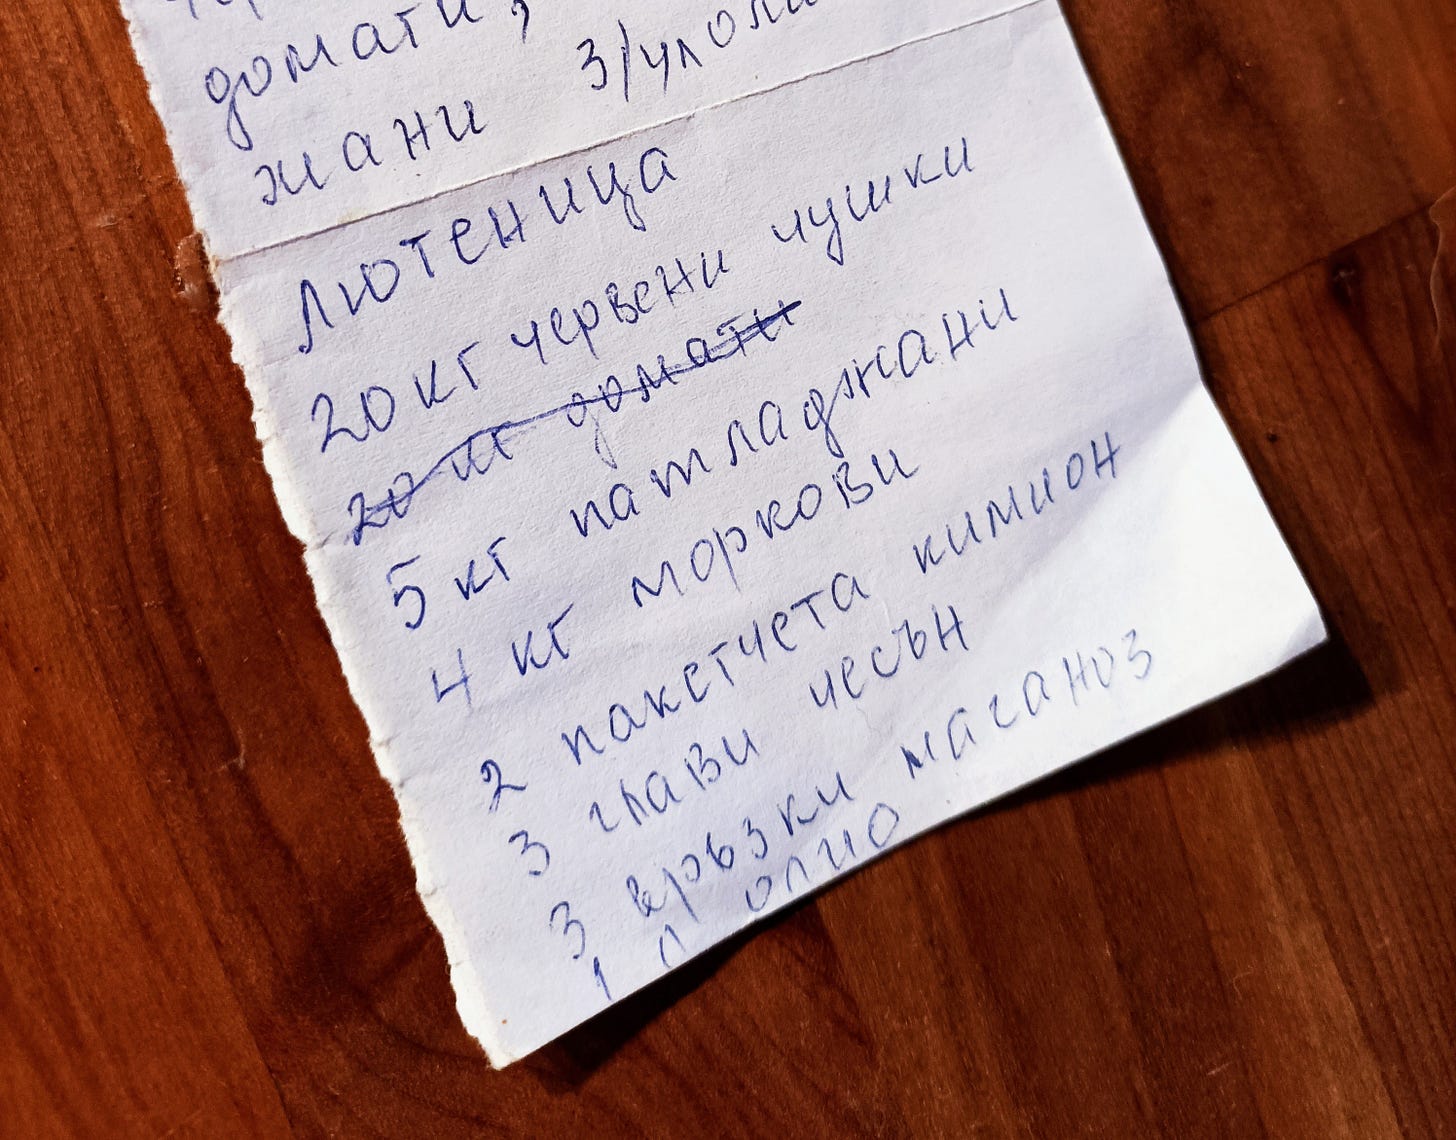 домати,
жани 3/4 ло
Лютеница
20 кг червени чушки
20 кг домати
5 кг патладжани
4 кг моркови
2 пакетчета кимион
3 глави чесън
3 връзки маганоз
1 л олио